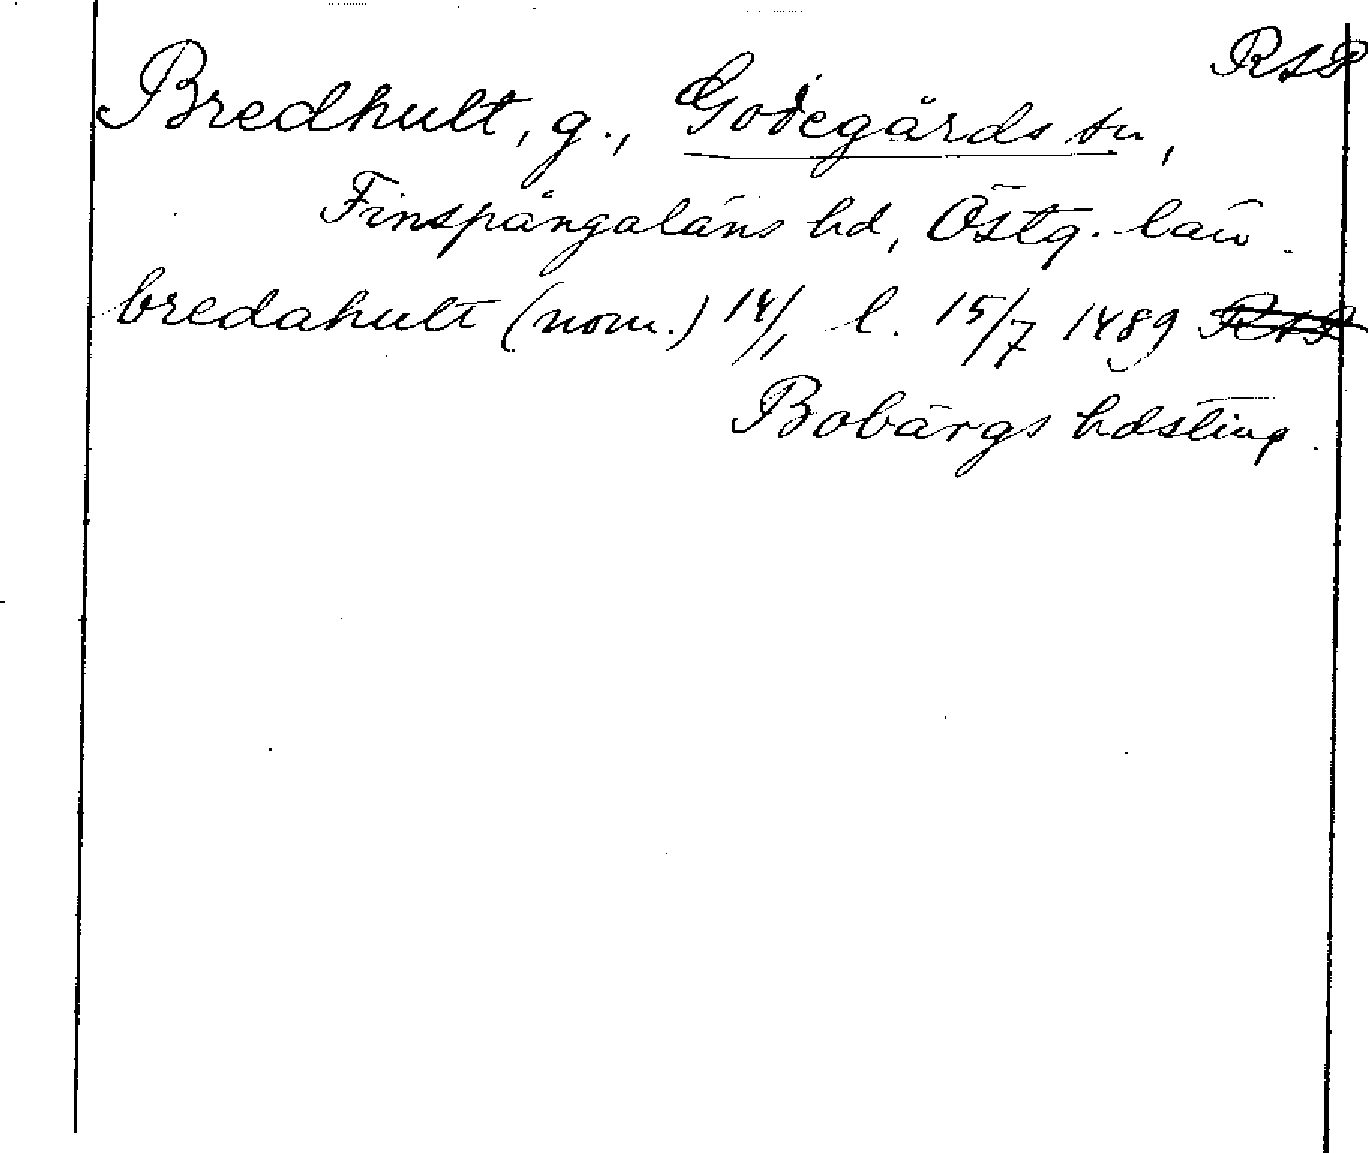 RAP
Bredhult, g., Godegårds sn,
Finspångaläns hd, Östg. län.
bredahult (nom.) 14/1 l. 15/7 1489 RAP
Bobärgs hdsting.